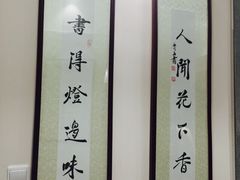 人聞花下香
書得燈邊味